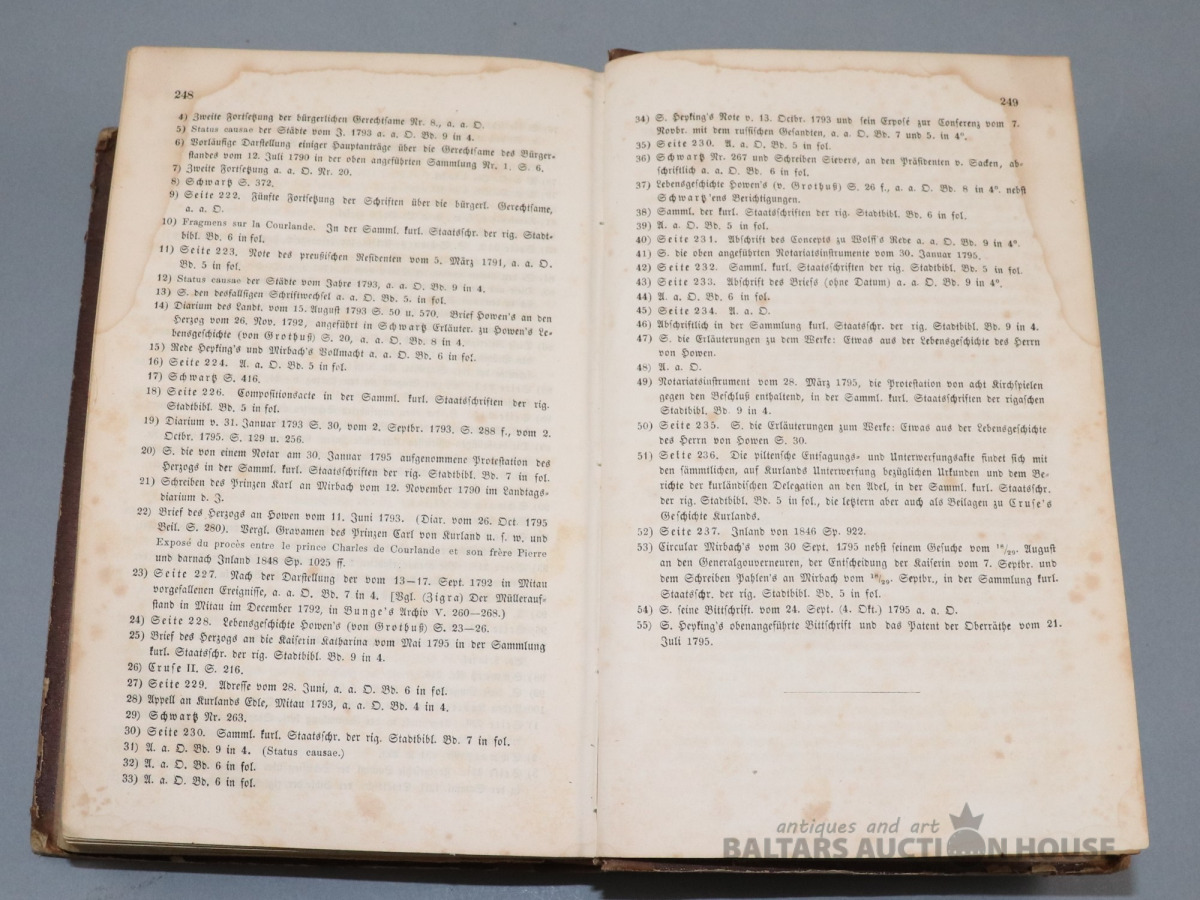 248
4) Zweite Fortsetzung der bürgerlichen Gerechtsame Nr. 8., a. a. O.
5) Status causae der Städte vom J. 1793 a. a. O. Bd. 9 in 4.
6) Vorläufige Darstellung einiger Hauptanträge über die Gerechtsame des Bürger-
standes vom 12. Juli 1790 in der oben angeführten Sammlung Nr. 1. S. 6.
7) Zweite Fortsetzung a. a. O. Nr. 20.
8) Schwartz S. 372.
9) Seite 222. Fünfte Fortsetzung der Schriften über die bürgerl. Gerechtsame,
a. a. O.
10) Fragmens sur la Courlande. In der Samml. kurl. Staatsschr. der rig. Stadt-
bibl. Bd. 6 in fol.
11) Seite 223. Note des preußischen Residenten vom 5. März 1791, a. a. O.
Bd. 5 in fol.
12) Status causae der Städte vom Jahre 1793, a. a. O. Bd. 9 in 4.
13) S. den desfallsigen Schriftwechsel a. a. O. Bd. 5. in fol.
14) Diarium des Landt. vom 15. August 1793 S. 50 u. 570. Brief Howen's an den
Herzog vom 26. Nov. 1792, angeführt in Schwartz Erläuter. zu Howen's Le-
bensgeschichte (von Grothuß) S. 20, a. a. O. Bd. 8 in 4.
15) Rede Heyking's und Mirbach's Vollmacht a. a. O. Bd. 6 in fol.
16) Seite 224. A. a. O. Bd. 5 in fol.
17) Schwartz S. 416.
18) Seite 226. Compositionsacte in der Samml. kurl. Staatsschriften der rig.
Stadtbibl. Bd. 5 in fol.
19) Diarium v. 31. Januar 1793 S. 30, vom 2. Septbr. 1793. S. 288 f., vom 2.
Octbr. 1795. S. 129 u. 256.
20) S. die von einem Notar am 30. Januar 1795 aufgenommene Protestation des
Herzogs in der Samml. kurl. Staatsschriften der rig. Stadtbibl. Bd. 7 in fol.
21) Schreiben des Prinzen Karl an Mirbach vom 12. November 1790 im Landtags-
diarium d. J.
22) Brief des Herzogs an Howen vom 11. Juni 1793. (Diar. vom 26. Oct. 1795
Beil. S. 280). Vergl. Gravamen des Prinzen Carl von Kurland u. s. w. und
Exposé du procès entre le prince Charles de Courlande et son frère Pierre
und darnach Inland 1848 Sp. 1025 ff.
23) Seite 227. Nach der Darstellung der vom 13—17. Sept. 1792 in Mitau
vorgefallenen Ereignisse, a. a. O. Bd. 7 in 4. [Vgl. (Zigra) Der Müllerauf-
stand in Mitau im December 1792, in Bunge's Archiv V. 260—268.)
24) Seite 228. Lebensgeschichte Howen's (von Grothuß) S. 23—26.
25) Brief des Herzogs an die Kaiserin Katharina vom Mai 1795 in der Sammlung
kurl. Staatsschr. der rig. Stadtbibl. Bd. 9 in 4.
26) Cruse II. S. 216.
27) Seite 229. Adresse vom 28. Juni, a. a. O. Bd. 6 in fol.
28) Appell an Kurlands Edle, Mitau 1793, a. a. O. Bd. 4 in 4.
29) Schwartz Nr. 263.
30) Seite 230. Samml. kurl. Staatsschr. der rig. Stadtbibl. Bd. 7 in fol.
31) A. a. O. Bd. 9 in 4. (Status causae.)
32) A. a. O. Bd. 6 in fol.
33) A. a. O. Bd. 6 in fol.
249
34) S. Heyking's Note v. 13. Octbr. 1793 und sein Exposé zur Conferenz vom 7.
Novbr. mit dem russischen Gesandten, a. a. O. Bd. 7 und 5. in 4°.
35) Seite 230. A. a. O. Bd. 5 in fol.
36) Schwartz Nr. 267 und Schreiben Sievers, an den Präsidenten v. Sacken, ab-
schriftlich a. a. O. Bd. 6 in fol.
37) Lebensgeschichte Howen's (v. Grothuß) S. 26 f., a. a. O. Bd. 8 in 4°. nebst
Schwartz'ens Berichtigungen.
38) Samml. der kurl. Staatsschriften der rig. Stadtbibl. Bd. 6 in fol.
39) A. a. O. Bd. 5 in fol.
40) Seite 231. Abschrift des Concepts zu Wolff's Rede a. a. O. Bd. 9 in 4°.
41) S. die oben angeführten Notariatsinstrumente vom 30. Januar 1795.
42) Seite 232. Samml. kurl. Staatsschriften der rig. Stadtbibl. Bd. 5 in fol.
43) Seite 233. Abschrift des Briefs (ohne Datum) a. a. O. Bd. 9 in 4°.
44) A. a. O. Bd. 6 in fol.
45) Seite 234. A. a. O.
46) Abschriftlich in der Sammlung kurl. Staatsschr. der rig. Stadtbibl. Bd. 9 in 4.
47) S. die Erläuterungen zu dem Werke: Etwas aus der Lebensgeschichte des Herrn
von Howen.
48) A. a. O.
49) Notariatsinstrument vom 28. März 1795, die Protestation von acht Kirchspielen
gegen den Beschluß enthaltend, in der Samml. kurl. Staatsschriften der rigaschen
Stadtbibl. Bd. 9 in 4.
50) Seite 235. S. die Erläuterungen zum Werke: Etwas aus der Lebensgeschichte
des Herrn von Howen S. 30.
51) Seite 236. Die piltensche Entsagungs- und Unterwerfungsakte findet sich mit
den sämmtlichen, auf Kurlands Unterwerfung bezüglichen Urkunden und dem Be-
richte der kurländischen Delegation an den Adel, in der Samml. kurl. Staatsschr.
der rig. Stadtbibl. Bd. 5 in fol., die letztern aber auch als Beilagen zu Cruse's
Geschichte Kurlands.
52) Seite 237. Inland von 1846 Sp. 922.
53) Circular Mirbach's vom 30 Sept. 1795 nebst seinem Gesuche vom 18/29. August
an den Generalgouverneuren, der Entscheidung der Kaiserin vom 7. Septbr. und
dem Schreiben Pahlen's an Mirbach vom 18/29. Septbr., in der Sammlung kurl.
Staatsschr. der rig. Stadtbibl. Bd. 5 in fol.
54) S. seine Bittschrift. vom 24. Sept. (4. Okt.) 1795 a. a. O.
55) S. Heyking's obenangeführte Bittschrift und das Patent der Oberräthe vom 21.
Juli 1795.
antiques and art
BALTARS AUCTION HOUSE